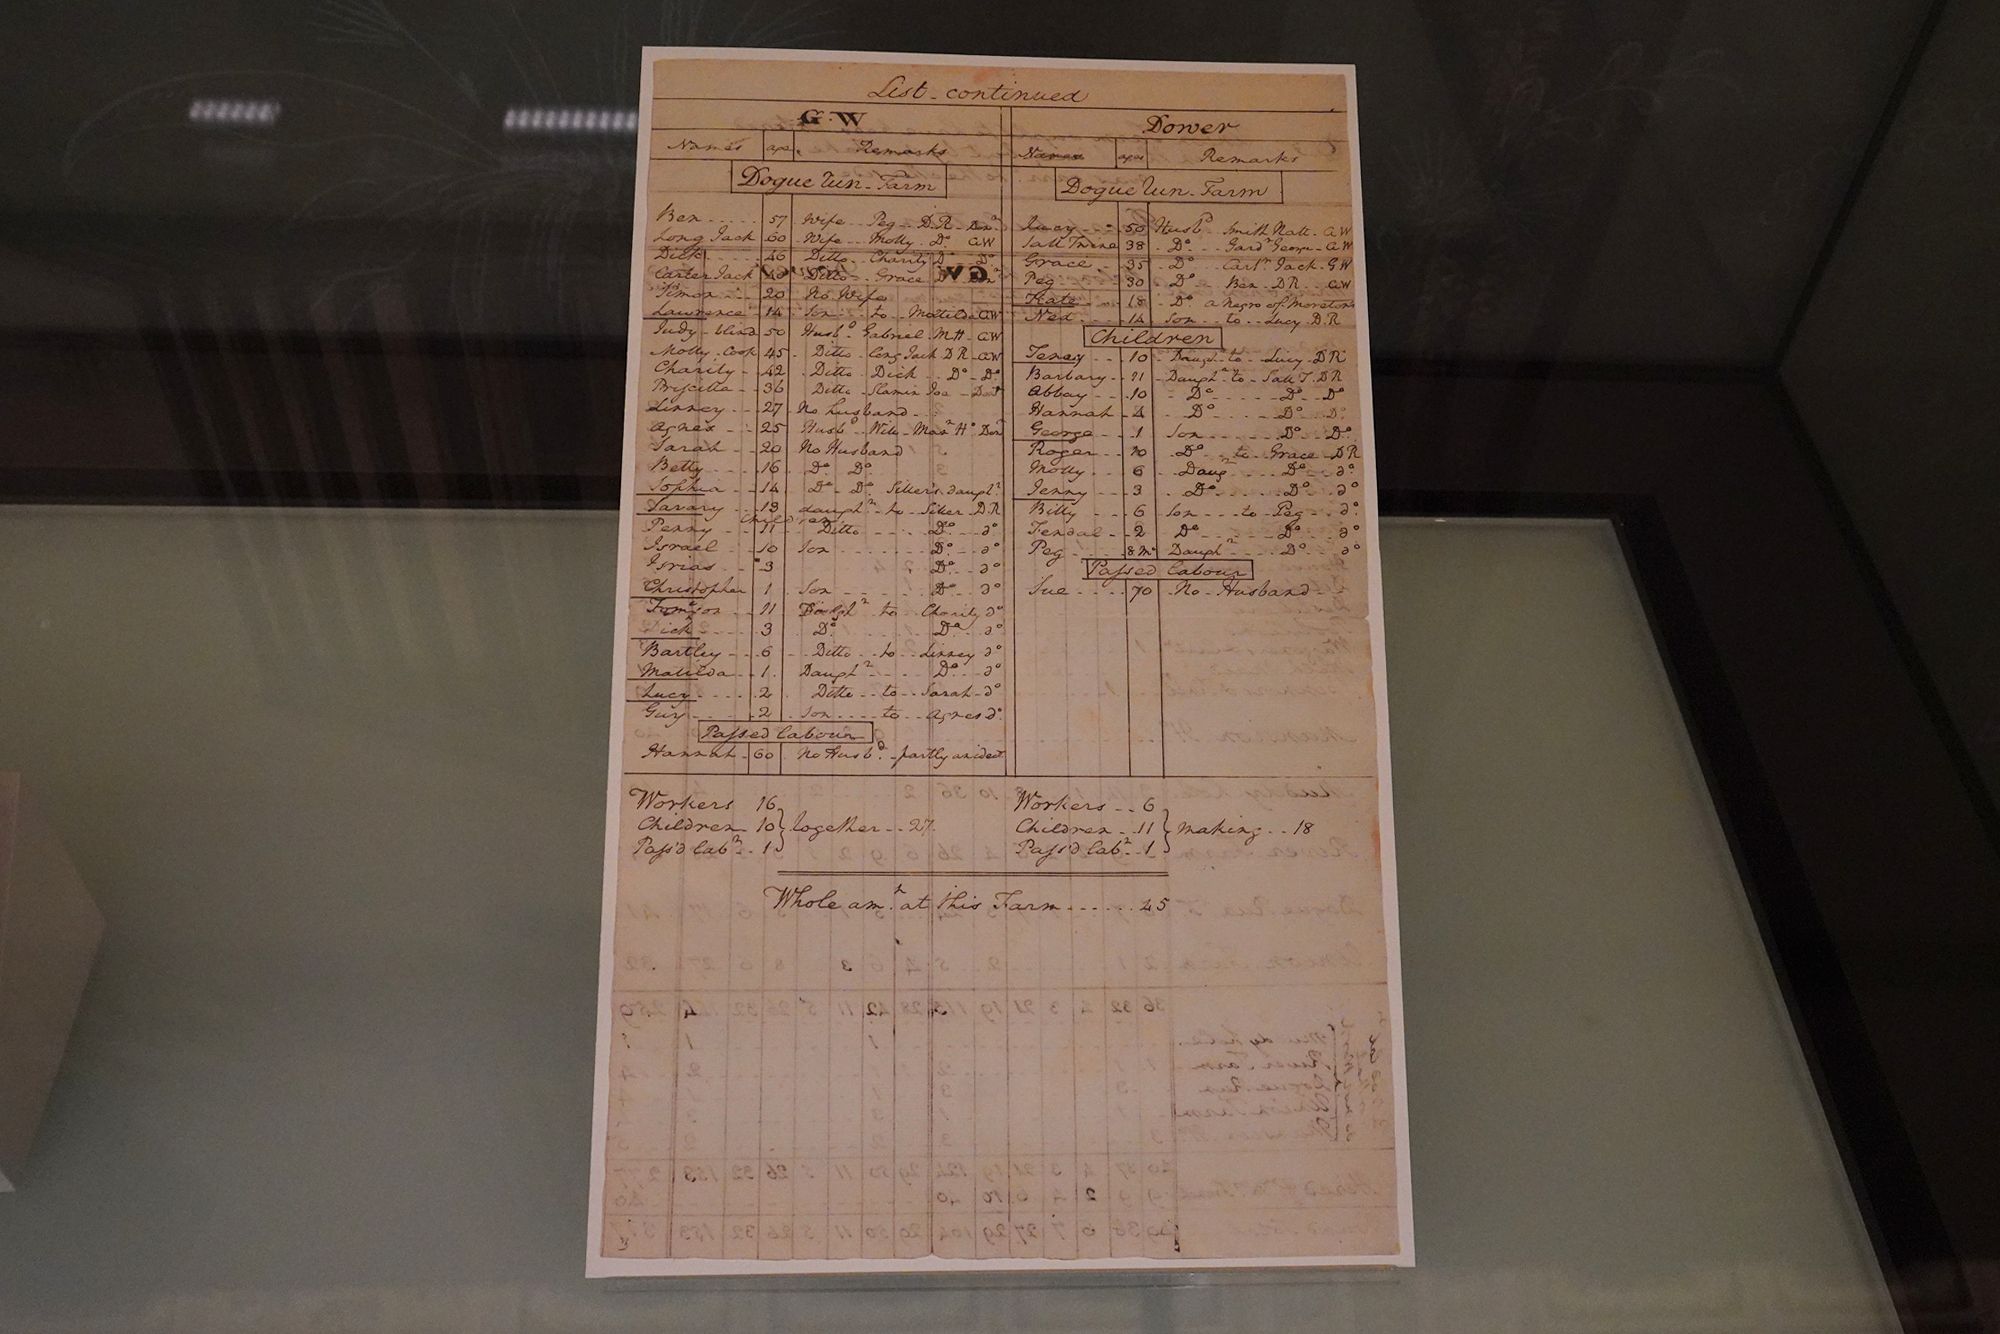 List continued
G.W
Names ages Remarks
Dogue Run - Farm
Ben 57 Wife Peg D.R - Dowr
Long Jack 60 Wife Molly Do GW
Dick 46 Ditto Charity Do Do
Carter Jack 40 Ditto Grace D Dowr
Simon 20 No Wife
Lawrence 14 Son to Matilda GW
Judy - blind 50 Husbd Gabriel M.H - GW
Molly. Cook 45 Ditto Long Jack DR - GW
Charity 42 Ditto Dick Do Do
Priscilla 36 Ditto Slamin Joe
Linney 27 No husband
Agnes 25 Husbd Will - Mann Ho Dowr
Sarah 20 No Husband
Betty 16 Do Do
Sophia 14 Do Do Siller's daughr
Savary 13 daughr to Siller D.R
Children
Penny 11 Ditto Do do
Israel 10 Son Do do
Isrias 3 Do do
Christopher 1 Son Do do
Tomison 11 Daughr to Charity do
Dick 3 Do Do do
Bartley 6 Ditto to Linney do
Matilda 1 Daughr Do do
Lucy 2 Ditto to Sarah do
Guy 2 Son to Agnes do
Passed labour
Hannah 60 No Husbd - partly an ideot
Workers 16
Children 10 } together 27.
Pass'd Labr 1
Dower
Names ages Remarks
Dogue Run - Farm
Lucy 50 Husbd Smith Natt. GW
Sall Twine 38 Do Gardr George - GW
Grace 35 Do Cartr Jack - GW
Peg 30 Do Ben DR GW
Kate 18 Do a Negro of Moreton's
Ned 14 Son to Lucy D.R
Children
Teney 10 Daughr to Lucy DR
Barbary 11 Daughr to Sall T. DR
Abbay 10 Do Do Do
Hannah 4 Do Do Do
George 1 Son Do Do
Roger 10 Do to Grace DR
Molly 6 Daugr Do do
Jenny 3 Do Do do
Billy 6 Son to Peg do
Tendal 2 Do Do do
Peg 8 Mo Daughr Do do
Passed labour
Sue 70 No Husband
Workers 6
Children 11 } making 18
Pass'd Labr 1
Whole amt at this Farm 45